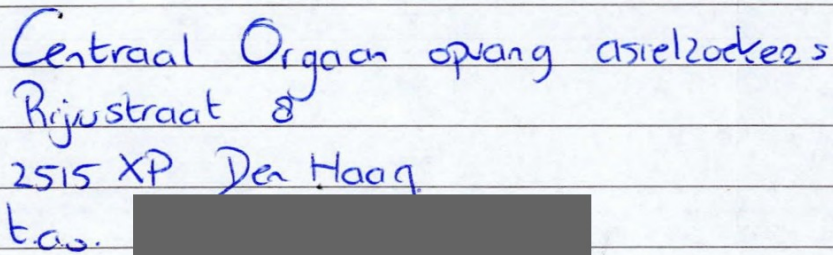 Centraal Orgaan opvang asielzoekers
Rijnstraat 8
2515 XP Den Haag
t.a.v.